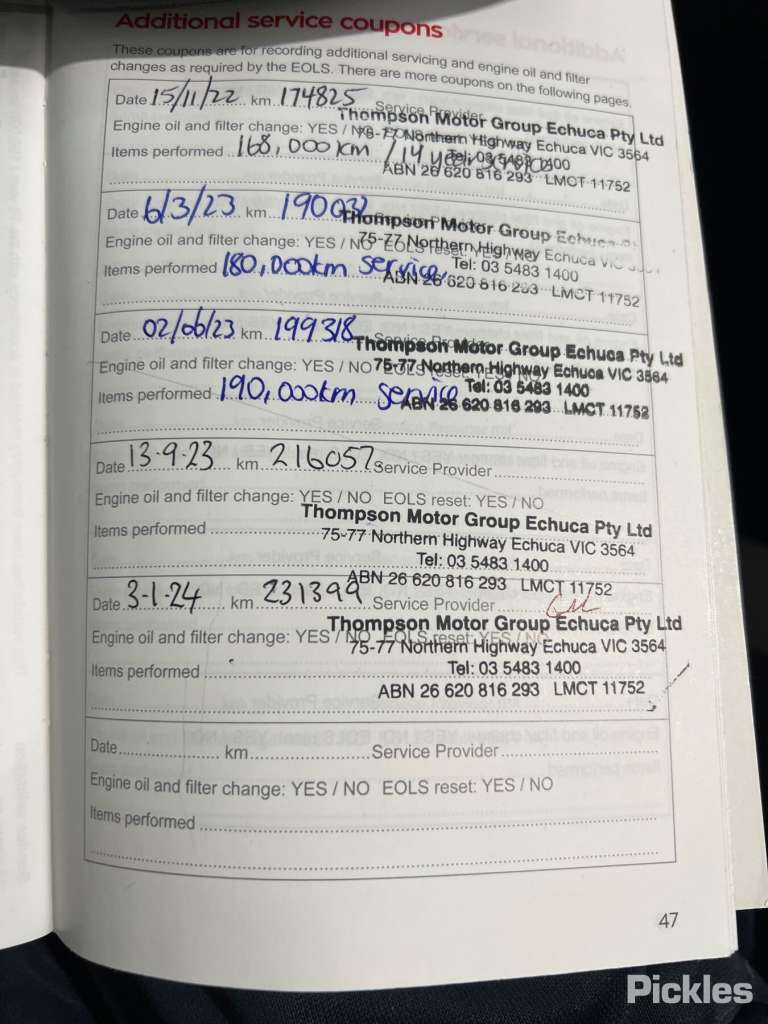 Additional service coupons
These coupons are for recording additional servicing and engine oil and filter
changes as required by the EOLS. There are more coupons on the following pages.
Date 15/11/22 km 174825 Service Provider
Thompson Motor Group Echuca Pty Ltd
Engine oil and filter change: YES / NO
75-77 Northern Highway Echuca VIC 3564
Items performed 168,000km / 14 year service
Tel: 03 5483 1400
ABN 26 620 816 293 LMCT 11752
Date 6/3/23 km 190032
Thompson Motor Group Echuca
Engine oil and filter change: YES / NO EOLS reset: YES / NO
75-77 Northern Highway Echuca VIC 3564
Items performed 180,000km service
Tel: 03 5483 1400
ABN 26 620 816 293 LMCT 11752
Date 02/06/23 km 199318 Service
Thompson Motor Group Echuca Pty Ltd
Engine oil and filter change: YES / NO
75-77 Northern Highway Echuca VIC 3564
Items performed 190,000km service
Tel: 03 5483 1400
ABN 26 620 816 293 LMCT 11752
Date 13-9-23 km 216057 Service Provider
Engine oil and filter change: YES / NO EOLS reset: YES / NO
Thompson Motor Group Echuca Pty Ltd
Items performed
75-77 Northern Highway Echuca VIC 3564
Tel: 03 5483 1400
ABN 26 620 816 293 LMCT 11752
Date 3-1-24 km 231399 Service Provider
Thompson Motor Group Echuca Pty Ltd
Engine oil and filter change: YES / NO EOLS reset: YES / NO
75-77 Northern Highway Echuca VIC 3564
Items performed
Tel: 03 5483 1400
ABN 26 620 816 293 LMCT 11752
Date km Service Provider
Engine oil and filter change: YES / NO EOLS reset: YES / NO
Items performed
47
Pickles